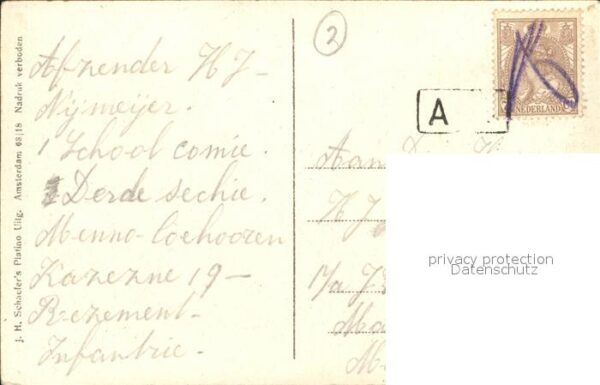 J. H. Schaefer's Platino Uitg. Amsterdam 68|18 Nadruk verboden
2
Afzender H J-
Nijmeijer.
1 School comie.
Derde sechie.
Menno-Coehooren
Kazezne 19-
Rezement-
Infantrie-
NEDERLAND
A
Aan
H J
Ma
M
privacy protection
Datenschutz